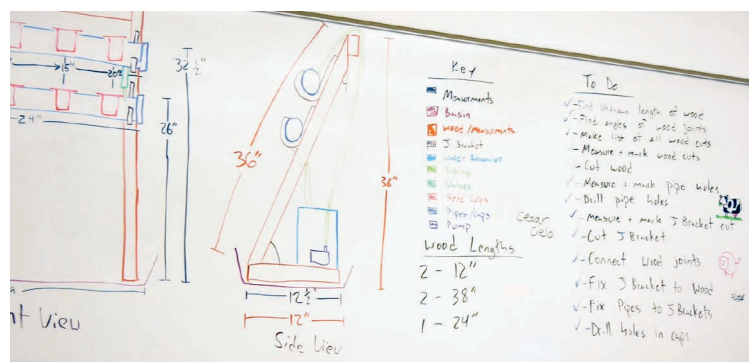 1.5"
24"
26"
32 1/2"
nt View
36"
36"
12 1/2"
12"
Side View
Key
Measurments
Basin
Wood/Measurments
J Bracket
Water Reservoir
Tubing
Valves
Seed Cups
Pipes/Caps
Pump
Cesar
Cielo
Wood Lengths
2 - 12"
2 - 38"
1 - 24"
To Do
✓-Find Unknown length of wood
✓-Find angles of wood joints
✓-Make list of all wood cuts
✓-Measure + mark wood cuts
✓-Cut wood
✓-Measure + mark pipe holes
✓-Drill pipe holes
✓-Measure + mark J Bracket cut
✓-Cut J Bracket
✓-Connect Wood joints
✓-Fix J Bracket to Wood
✓-Fix Pipes to J Brackets
✓-Drill holes in caps